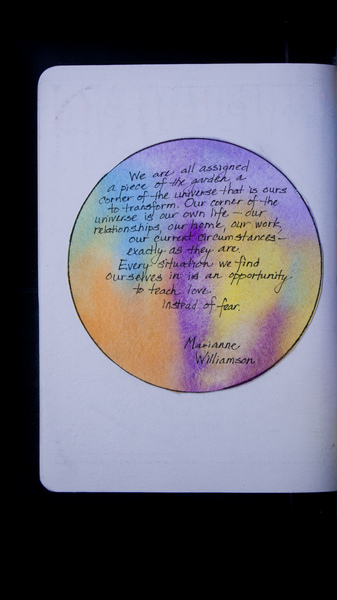 We are all assigned
a piece of the garden, a
corner of the universe that is ours
to transform. Our corner of the
universe is our own life — our
relationships, our home, our work,
our current circumstances —
exactly as they are.
Every situation we find
ourselves in is an opportunity
to teach love
instead of fear.
Marianne
Williamson